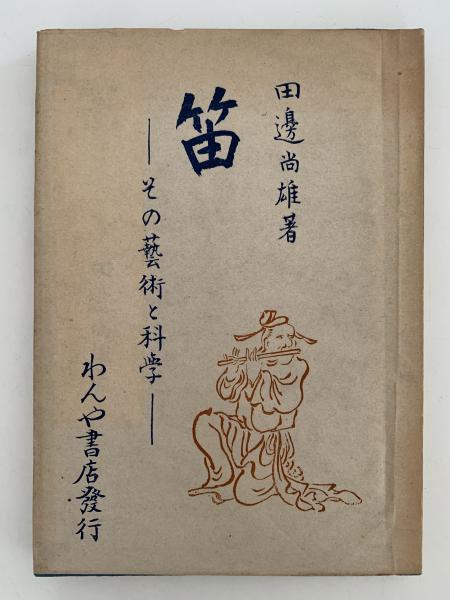 田邊尚雄著
笛
—その藝術と科学—
わんや書店發行